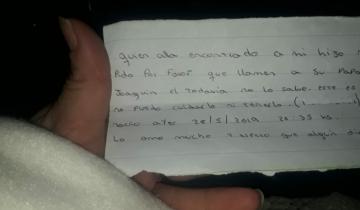 quien alla encontrado a mi hijo
Pido Por Favor que llamen a Su Papa
Joaquin el todavia no lo sabe. este es
no puedo cuidarlo ni tenerlo. (1
nacio ayer 28/5/2019 20:35 hs
Lo amo mucho y espero que algun dia